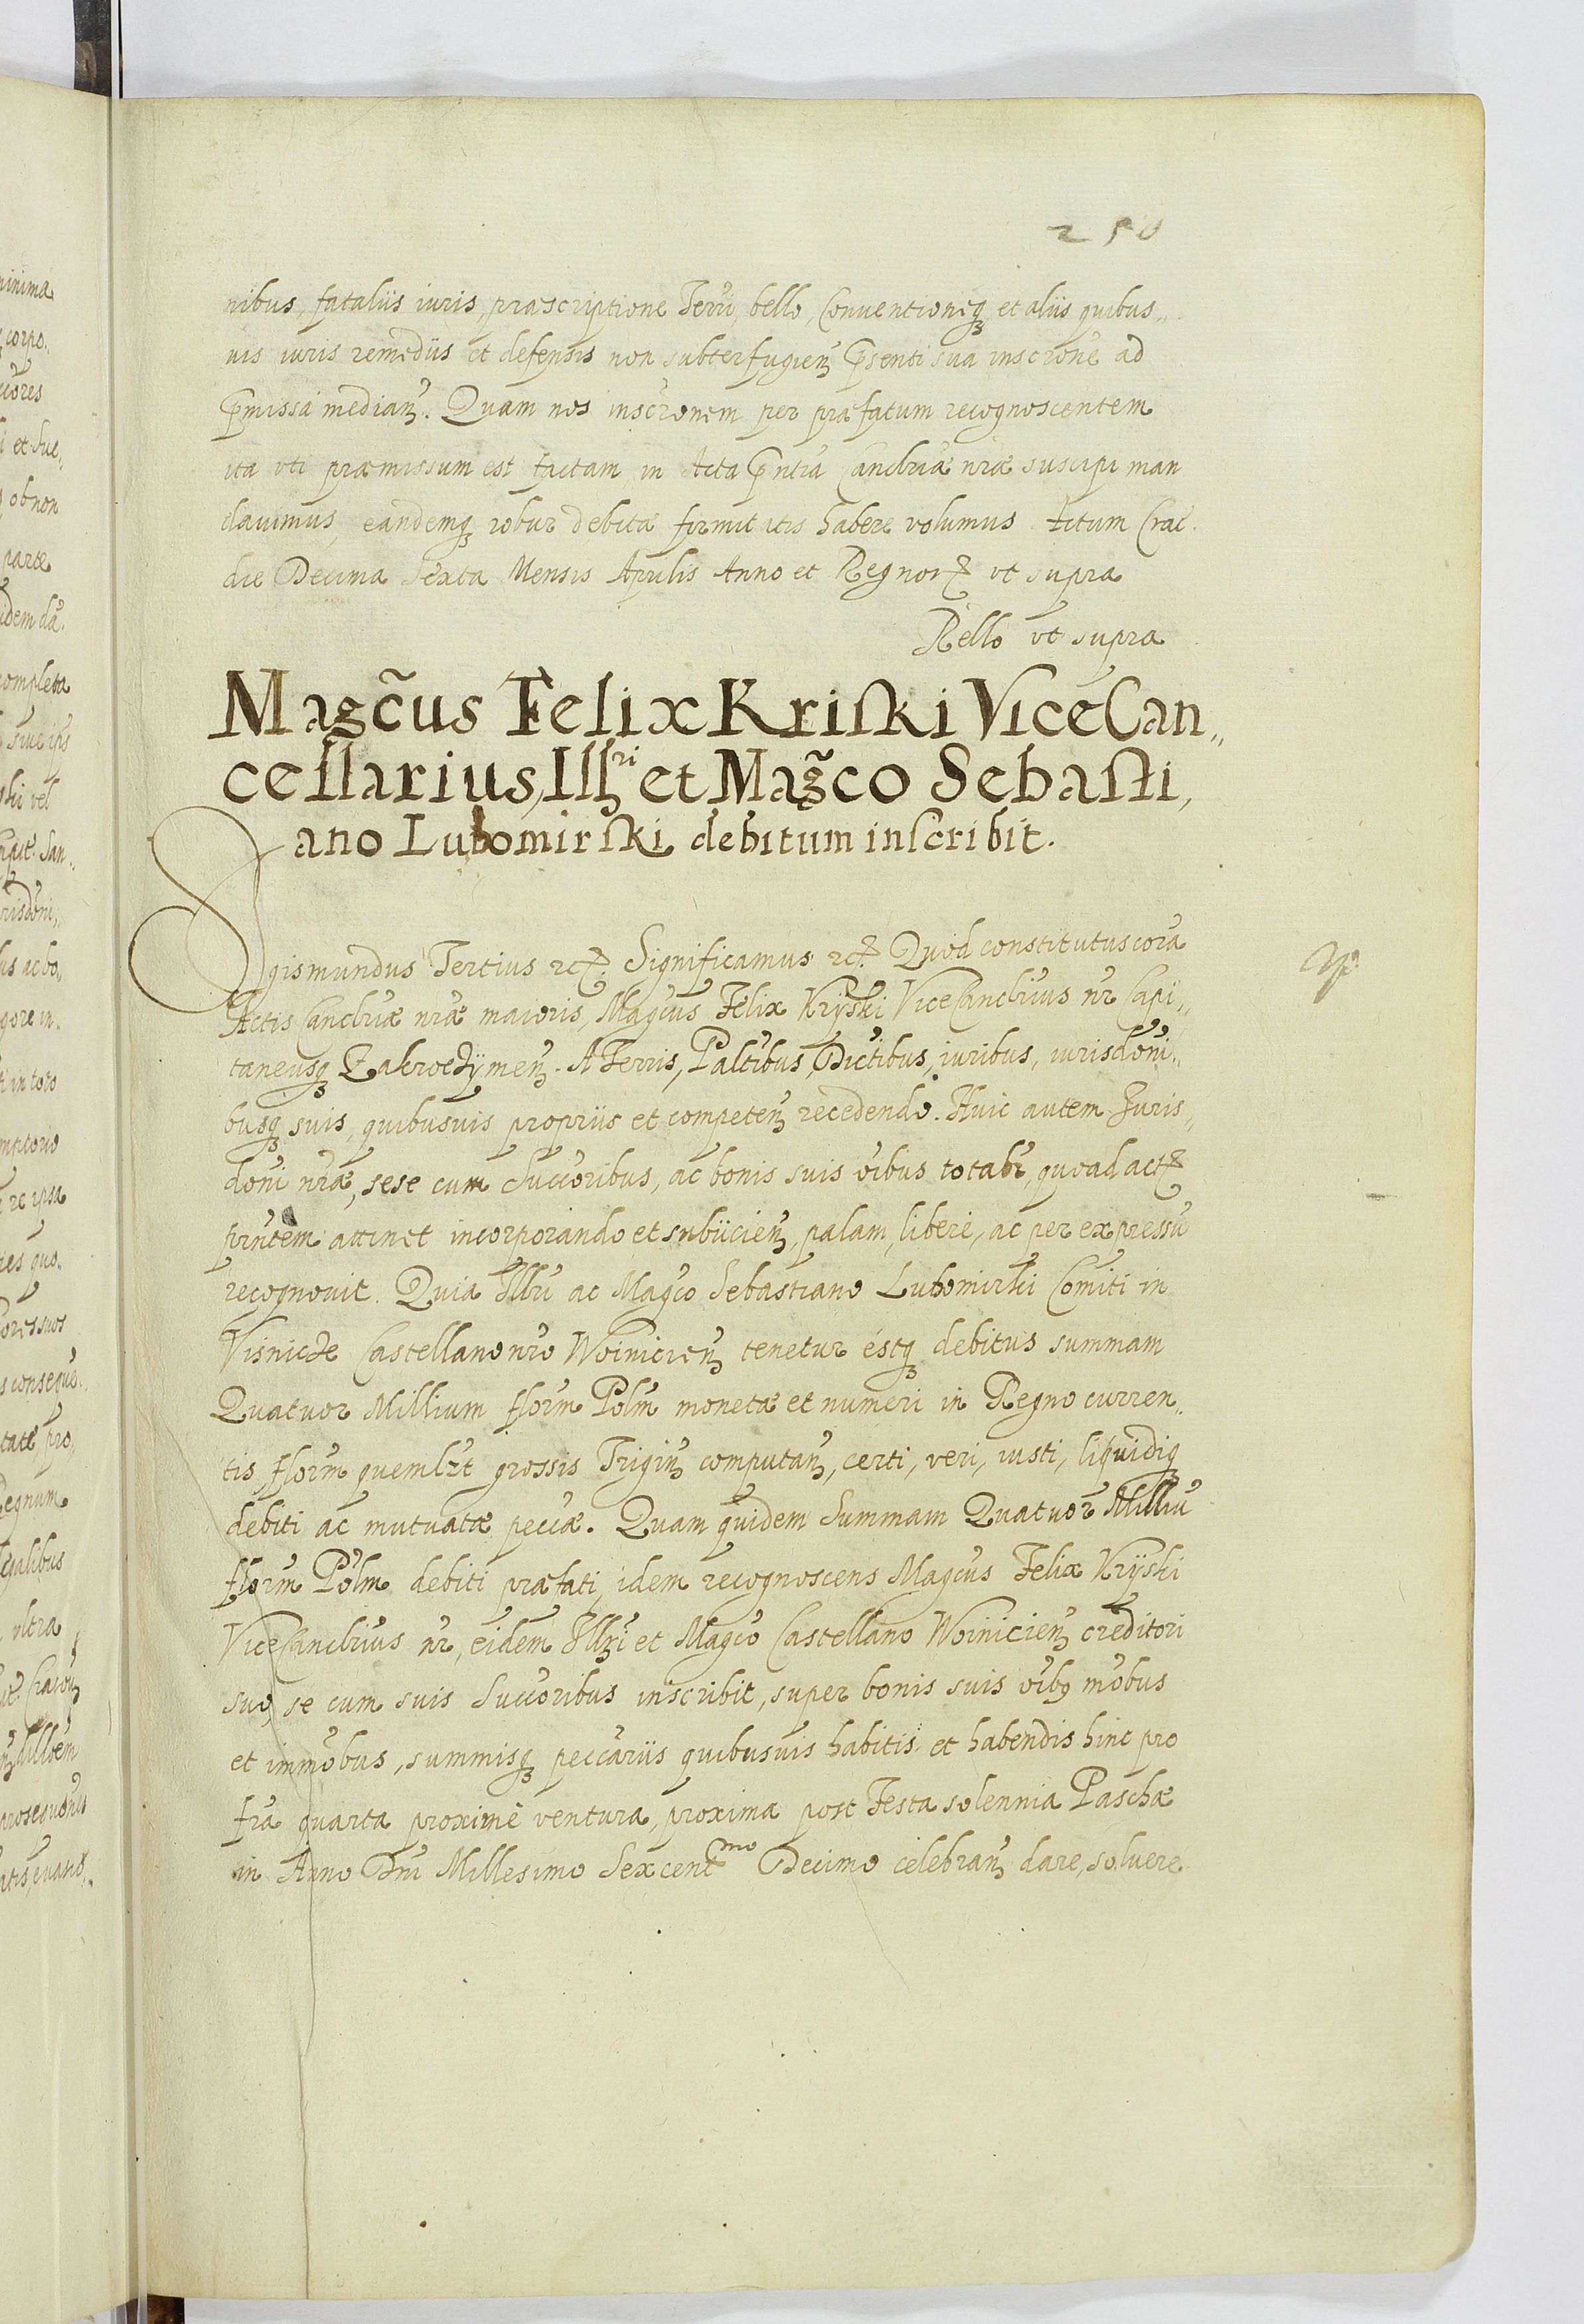 250
nibus, fataliis iuris, præscriptione Terri, bello, Conventioneq₃ et aliis quibus„
uis iuris remediis et defensis non subterfugien̄ pr̄senti sua inscr̄one ad
pr̄missa median̄. Quam nos inscr̄onem per præfatum recognoscentem
ita vti præmissum est factam in Acta pr̄ntia Cancl̄riæ nr̄æ suscipi man
davimus, eandemq₃ robur debitæ firmit̄atis habere volumus Actum Crac̄.
die Decima Sexta Mensis Aprilis Anno et Regnorꝝ vt supra
Rello vt supra
Magc̃us Felix Kriſki Vice Can„
cellarius, Illri et Mag̃co Sebaſti,
ano Lubomirſki debitum inſcribit.
Sigismundus Tertius ꝛcꝭ. Significamus ꝛcꝭ. Quod constitutus corā
Actis Cancl̄riæ nr̄æ maioris, Magc̄us Felix Krÿski ViceCancl̄rius nr̄ Capi„
taneusq₃ Zakroczÿmen̄. A Terris, Palt̄ibus, Dict̄ibus, iuribus, iurisdōni„
busq₃ suis, quibusuis propriis et competen̄ recedendo. Huic autem Juris„
dōni nr̄æ, sese cum Succ̄oribus, ac bonis suis oībus totalr̄, quoad actꝫ
prn̄tem attinet incorporando et subiicien̄, palam, libere, ac per expressū
recognouit. Quia Illri ac Magc̄o Sebastiano Lubomirski Comiti in
Visnicze Castellano nr̄o Woinicien̄ tenetur estq₃ debitus summam
Quatuor Millium flor̄m Pol̄m monetæ et numeri in Regno curren„
tis flor̄m quemlꝫt grossis Trigin̄ computan̄, certi, veri, iusti, liquidiq₃
debiti ac mutuatæ pecc̄æ. Quam quidem Summam Quatuor Milliū
flor̄m Pol̄m debiti præfati, idem recognoscens Magc̄us Felix Krÿski
ViceCancl̄rius nr̄, eidem Illri et Magc̄o Castellano Woinicien̄ creditori
suo, se cum suis Succ̄oribus inscribit, super bonis suis oībꝯ mōbus
et immōbus, summisq₃ pecc̄ariis quibusuis habitis et habendis hinc pro
fr̄ia quarta proximè ventura, proxima post Festa solennia Paschæ
in Anno Dn̄i Millesimo Sexcent^mo Decimo celebran̄ dare, soluere